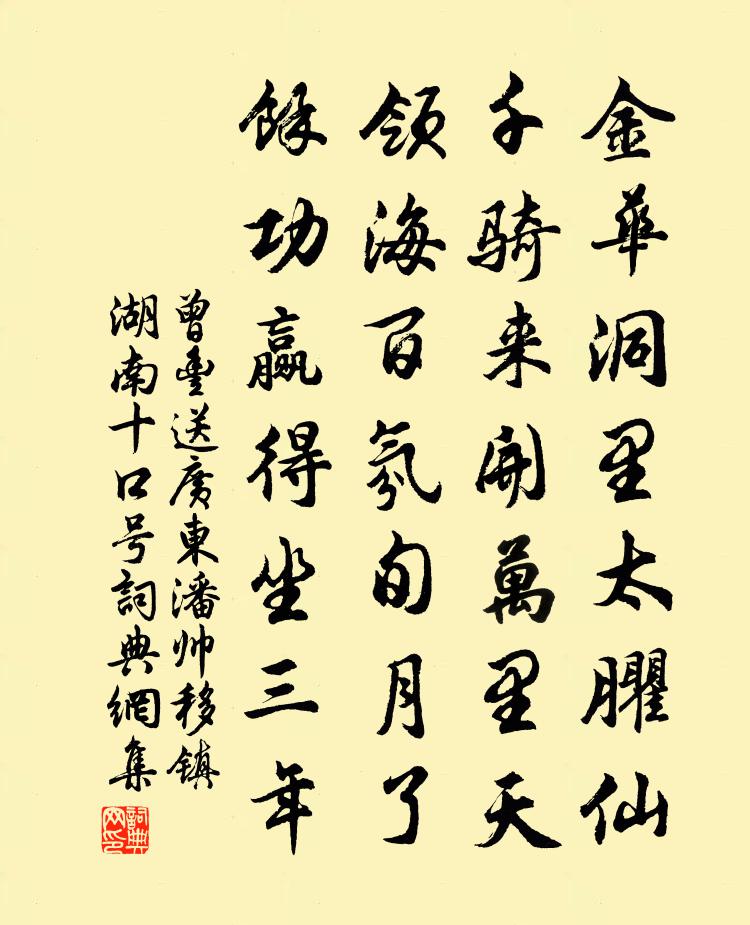 金華洞里太臞仙
千騎来開萬里天
領海百氛旬月了
餘功贏得坐三年
曾豊送廣東潘帅移鎮
湖南十口号詞典網集
詞典網印